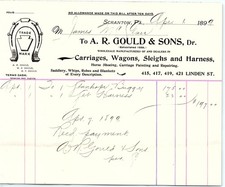 NO ALLOWANCE MADE ON THIS BILL AFTER TEN DAYS
SCRANTON, PA. Apr 1 1899
M James
To A. R. GOULD & SONS, Dr.
TRADE MARK
WHOLESALE MANUFACTURERS OF AND DEALERS IN
Carriages, Wagons, Sleighs and Harness,
Horse Shoeing, Carriage Painting and Repairing.
Saddlery, Whips, Robes and Blankets
of Every Description.
415, 417, 419, 421 LINDEN ST.
TERMS CASH.
Apr 1 To 1 Stanhope Buggy
" " Set Harness
Apr 7 1899
Recd payment
A R Gould & Sons